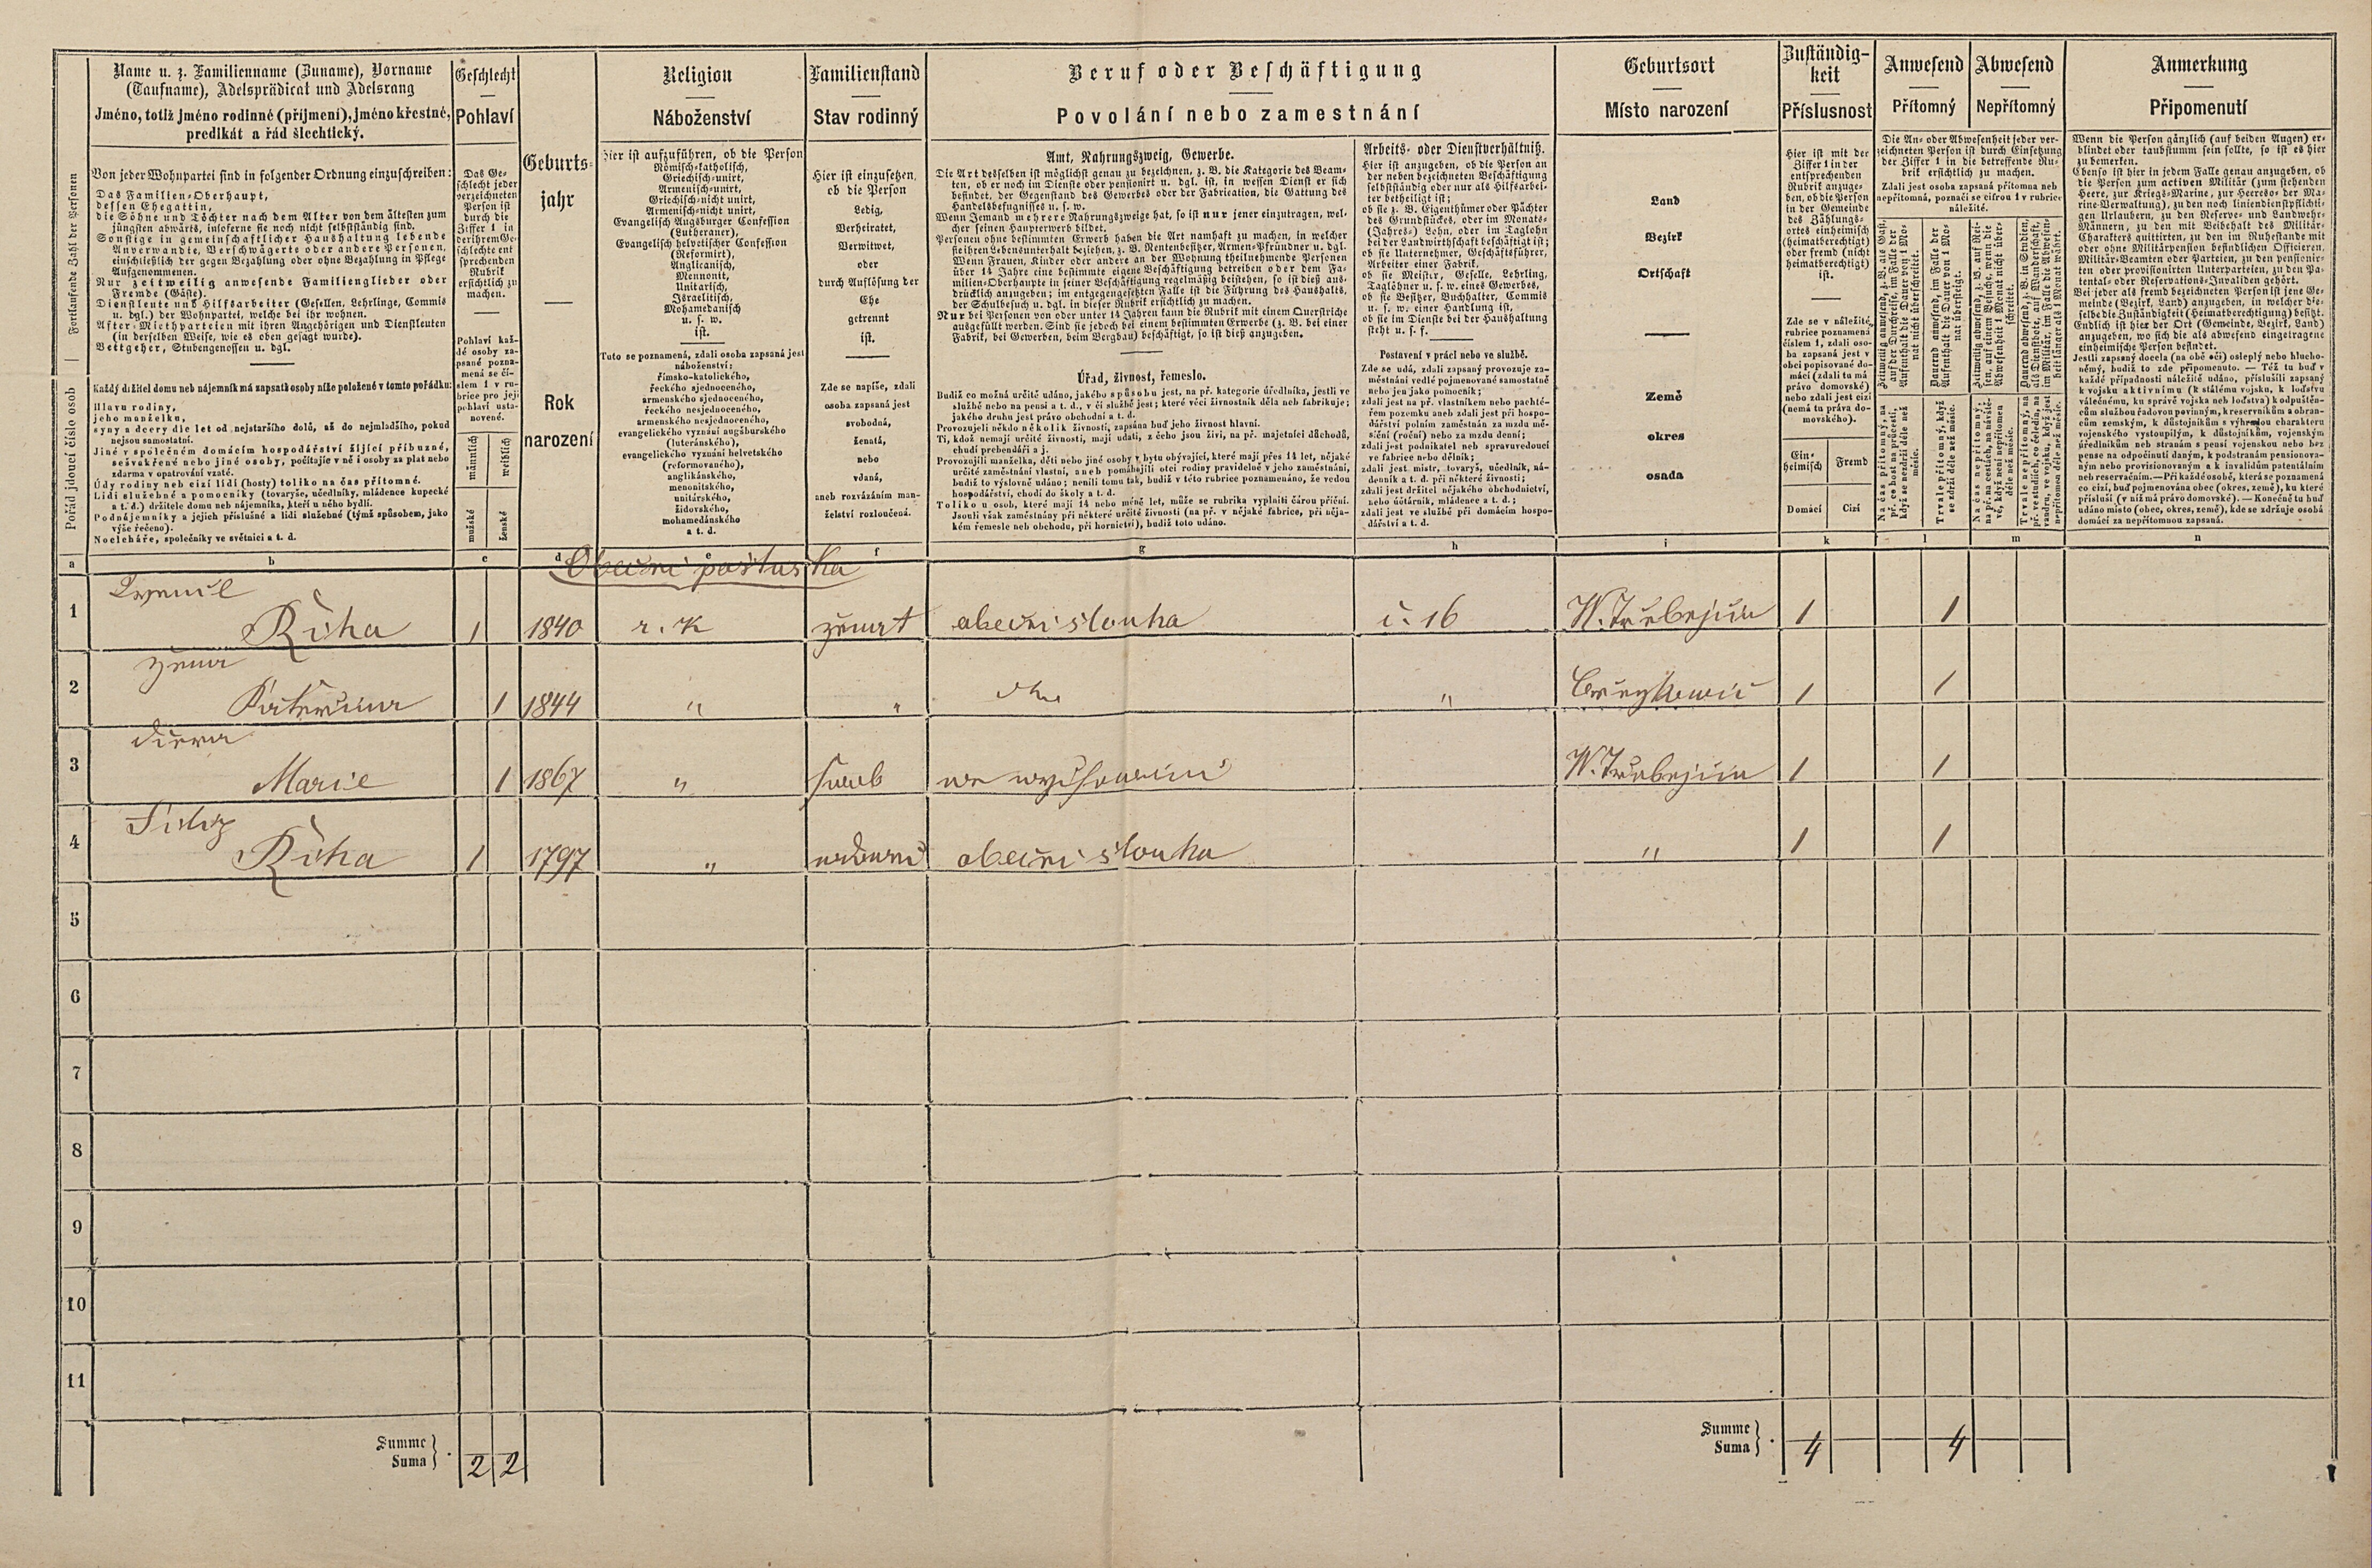 Fortlaufende Zahl der Personen
Pořád jdoucí číslo osob
Name u. z. Familienname (Zuname), Vorname
(Taufname), Adelsprädicat und Adelsrang
Jméno, totiž jméno rodinné (příjmení), jméno křestné,
predikát a řád šlechtický.
Von jeder Wohnpartei sind in folgender Ordnung einzuschreiben:
Das Familien-Oberhaupt,
dessen Ehegattin,
die Söhne und Töchter nach dem Alter von dem ältesten zum
jüngsten abwärts, insoferne sie noch nicht selbstständig sind.
Sonstige in gemeinschaftlicher Haushaltung lebende
Anverwandte, Verschwägerte oder andere Personen,
einschließlich der gegen Bezahlung oder ohne Bezahlung in Pflege
Aufgenommenen.
Nur zeitweilig anwesende Familienglieder oder
Fremde (Gäste).
Dienstleute und Hilfsarbeiter (Gesellen, Lehrlinge, Commis
u. dgl.) der Wohnpartei, welche bei ihr wohnen.
After-Miethparteien mit ihren Angehörigen und Dienstleuten
(in derselben Weise, wie es oben gesagt wurde).
Bettgeher, Stubengenossen u. dgl.
Každý držitel domu neb nájemník má zapsati osoby níže položené v tomto pořádku:
Hlavu rodiny,
jeho manželku,
syny a dcery dle let od nejstaršího dolů, až do nejmladšího, pokud
nejsou samostatní.
Jiné v společném domácím hospodářství žijící příbuzné,
sešvakřené nebo jiné osoby, počítajíc v ně i osoby za plat nebo
zdarma v opatrování vzaté.
Údy rodiny neb cizí lidi (hosty) toliko na čas přítomné.
Lidi služebné a pomocníky (tovaryše, učedlníky, mládence kupecké
a t. d.) držitele domu neb nájemníka, kteří u něho bydlí.
Podnájemníky a jejich příslušné a lidi služebné (týmž spůsobem, jako
výše řečeno).
Nocleháře, společníky ve světnici a t. d.
Geschlecht
Pohlaví
Das Ge-
schlecht jeder
verzeichneten
Person ist
durch die
Ziffer 1 in
der ihrem Ge-
schlechte ent
sprechenden
Rubrik
ersichtlich zu
machen.
Pohlaví kaž-
dé osoby za-
psané pozna-
mená se čí-
slem 1 v ru-
brice pro její
pohlaví usta-
novené.
männlich
weiblich
mužské
ženské
Geburts-
jahr
Rok
narození
Religion
Náboženství
Hier ist aufzuführen, ob die Person
Römisch-katholisch,
Griechisch-unirt,
Armenisch-unirt,
Griechisch-nicht unirt,
Armenisch-nicht unirt,
Evangelisch Augsburger Confession
(Lutheraner),
Evangelisch helvetischer Confession
(Reformirt),
Anglicanisch,
Mennonit,
Unitarisch,
Israelitisch,
Mohamedanisch
u. s. w.
ist.
Tuto se poznamená, zdali osoba zapsaná jest
náboženství:
římsko-katolického,
řeckého sjednoceného,
armenského sjednoceného,
řeckého nesjednoceného,
armenského nesjednoceného,
evangelického vyznání augšburského
(luteránského),
evangelického vyznání helvetského
(reformovaného),
anglikánského,
menonitského,
unitářského,
židovského,
mohamedánského
a t. d.
Familienstand
Stav rodinný
Hier ist einzusetzen,
ob die Person
Ledig,
Verheiratet,
Verwitwet,
oder
durch Auflösung der
Ehe
getrennt
ist.
Zde se napíše, zdali
osoba zapsaná jest
svobodná,
ženatá,
nebo
vdaná,
aneb rozvázáním man-
želství rozloučená.
Beruf oder Beschäftigung
Povolání nebo zamestnání
Amt, Nahrungszweig, Gewerbe.
Die Art desselben ist möglichst genau zu bezeichnen, z. B. die Kategorie des Beam-
ten, ob er noch im Dienste oder pensionirt u. dgl. ist, in wessen Dienst er sich
befindet, der Gegenstand des Gewerbes oder der Fabrication, die Gattung des
Handelsbefugnisses u. s. w.
Wenn Jemand mehrere Nahrungszweige hat, so ist nur jener einzutragen, wel-
cher seinen Haupterwerb bildet.
Personen ohne bestimmten Erwerb haben die Art namhaft zu machen, in welcher
sie ihren Lebensunterhalt beziehen, z. B. Rentenbesitzer, Armen-Pfründner u. dgl.
Wenn Frauen, Kinder oder andere an der Wohnung theilnehmende Personen
über 14 Jahre eine bestimmte eigene Beschäftigung betreiben oder dem Fa-
milien-Oberhaupte in seiner Beschäftigung regelmäßig beistehen, so ist dieß aus-
drücklich anzugeben; im entgegengesetzten Falle ist die Führung des Haushalts,
der Schulbesuch u. dgl. in dieser Rubrik ersichtlich zu machen.
Nur bei Personen von oder unter 14 Jahren kann die Rubrik mit einem Querstriche
ausgefüllt werden. Sind sie jedoch bei einem bestimmten Erwerbe (z. B. bei einer
Fabrik, bei Gewerben, beim Bergbau) beschäftigt, so ist dieß anzugeben.
Úřad, živnost, řemeslo.
Budiž co možná určitě udáno, jakého spůsobu jest, na př. kategorie úředlníka, jestli ve
službě nebo na pensi a t. d., v čí službě jest; které věci živnostník dělá neb fabrikuje;
jakého druhu jest právo obchodní a t. d.
Provozuje-li někdo několik živností, zapsána buď jeho živnost hlavní.
Ti, kdož nemají určité živnosti, mají udati, z čeho jsou živi, na př. majetníci důchodů,
chudí prebendáři a j.
Provozují-li manželka, děti nebo jiné osoby v bytu obývající, které mají přes 14 let, nějaké
určité zaměstnání vlastní, aneb pomáhají-li otci rodiny pravidelně v jeho zaměstnání,
budiž to výslovně udáno; není-li tomu tak, budiž v této rubrice poznamenáno, že vedou
hospodářství, chodí do školy a t. d.
Toliko u osob, které mají 14 nebo méně let, může se rubrika vyplniti čárou příční.
Jsou-li však zaměstnány při některé určité živnosti (na př. v nějaké fabrice, při něja-
kém řemesle neb obchodu, při hornictví), budiž toto udáno.
Arbeits- oder Dienstverhältniß.
Hier ist anzugeben, ob die Person an
der neben bezeichneten Beschäftigung
selbstständig oder nur als Hilfsarbei-
ter betheiligt ist;
ob sie z. B. Eigenthümer oder Pächter
des Grundstückes, oder im Monats-
(Jahres-) Lohn, oder im Taglohn
bei der Landwirthschaft beschäftigt ist;
ob sie Unternehmer, Geschäftsführer,
Arbeiter einer Fabrik,
ob sie Meister, Geselle, Lehrling,
Taglöhner u. s. w. eines Gewerbes,
ob sie Besitzer, Buchhalter, Commis
u. s. w. einer Handlung ist,
ob sie im Dienste bei der Haushaltung
steht u. s. f.
Postavení v práci nebo ve službě.
Zde se udá, zdali zapsaný provozuje za-
městnání vedlé pojmenované samostatně
nebo jen jako pomocník;
zdali jest na př. vlastníkem nebo pachté-
řem pozemku aneb zdali jest při hospo-
dářství polním zaměstnán za mzdu mě-
síční (roční) nebo za mzdu denní;
zdali jest podnikatel neb spravovedoucí
ve fabrice nebo dělník;
zdali jest mistr, tovaryš, učedlník, ná-
denník a t. d. při některé živnosti;
zdali jest držitel nějakého obchodnictví,
nebo účtárník, mládenec a t. d.;
zdali jest ve službě při domácím hospo-
dářství a t. d.
Geburtsort
Místo narození
Land
Bezirk
Ortschaft
Země
okres
osada
Zuständig-
keit
Příslusnost
Hier ist mit der
Ziffer 1 in der
entsprechenden
Rubrik anzuge-
ben, ob die Person
in der Gemeinde
des Zählungs-
ortes einheimisch
(heimatberechtigt)
oder fremd (nicht
heimatberechtigt)
ist.
Zde se v náležité
rubrice poznamená
číslem 1, zdali oso-
ba zapsaná jest v
obci popisované do-
mácí (zdali tu má
právo domovské)
nebo zdali jest cizí
(nemá tu práva do-
movského).
Ein-
heimisch
Fremd
Domácí
Cizí
Anwesend
Přítomný
Abwesend
Nepřítomný
Die An- oder Abwesenheit jeder ver-
zeichneten Person ist durch Einsetzung
der Ziffer 1 in die betreffende Ru-
brik ersichtlich zu machen.
Zdali jest osoba zapsaná přítomna neb
nepřítomná, poznačí se cifrou 1 v rubrice
náležité.
Anmerkung
Připomenutí
Wenn die Person gänzlich (auf beiden Augen) er-
blindet oder taubstumm sein sollte, so ist es hier
zu bemerken.
Ebenso ist hier in jedem Falle genau anzugeben, ob
die Person zum activen Militär (zum stehenden
Heere, zur Kriegs-Marine, zur Heeres- der Ma-
rine-Verwaltung), zu den noch liniendienstpflichti-
gen Urlaubern, zu den Reserve- und Landwehr-
Männern, zu den mit Beibehalt des Militär-
Charakters quittirten, zu den im Ruhestande mit
oder ohne Militärpension befindlichen Officieren,
Militär-Beamten oder Parteien, zu den pensionir-
ten oder provisionirten Unterparteien, zu den Pa-
tental- oder Reservations-Invaliden gehört.
Bei jeder als fremd bezeichneten Person ist jene Ge-
meinde (Bezirk, Land) anzugeben, in welcher die-
selbe die Zuständigkeit (Heimatberechtigung) besitzt.
Endlich ist hier der Ort (Gemeinde, Bezirk, Land)
anzugeben, wo sich die als abwesend eingetragene
einheimische Person befindet.
a b c d e f g h i k l m n
Obecni pastuska
1 Řiha 1 1840 r. K ženat obecni slouha č. 16 1 1
žena
2 Kateřina 1 1844 " " " 1 1
dcera
3 Marie 1 1867 " swob 1 1
4 Řiha 1 1797 " obecni slouha " 1 1
5
6
7
8
9
10
11
Summe
Suma
2 2
Summe
Suma
4 4